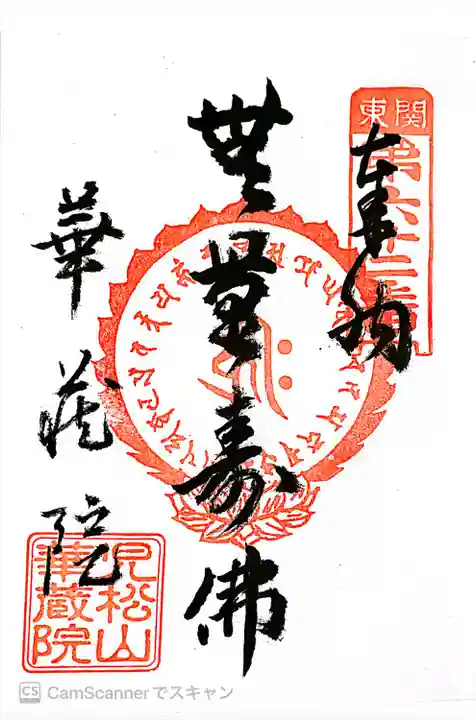 関東
第六十二番
奉納
無量寿佛
華蔵院
児松山
華蔵院
CS CamScannerでスキャン